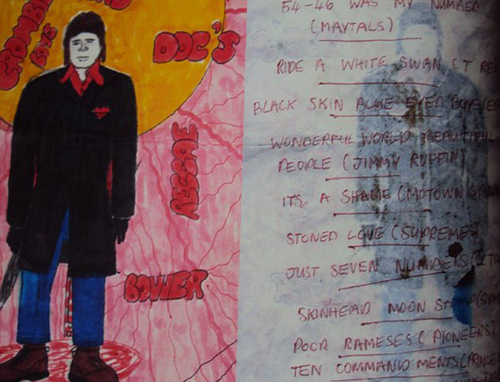 CROMBIE
DOC'S
REGGAE
BOVVER
54-46 WAS MY NUMBER
(MAYTALS)
RIDE A WHITE SWAN (T RE
BLACK SKIN BLUE EYED BOYS
WONDERFUL WORLD BEAUTIFUL
PEOPLE (JIMMY RUFFIN)
IT'S A SHAME (MOTOWN
STONED LOVE (SUPREMES)
JUST SEVEN NUMBERS
SKINHEAD MOON
POOR RAMESES (PIONEERS
TEN COMMANDMENTS